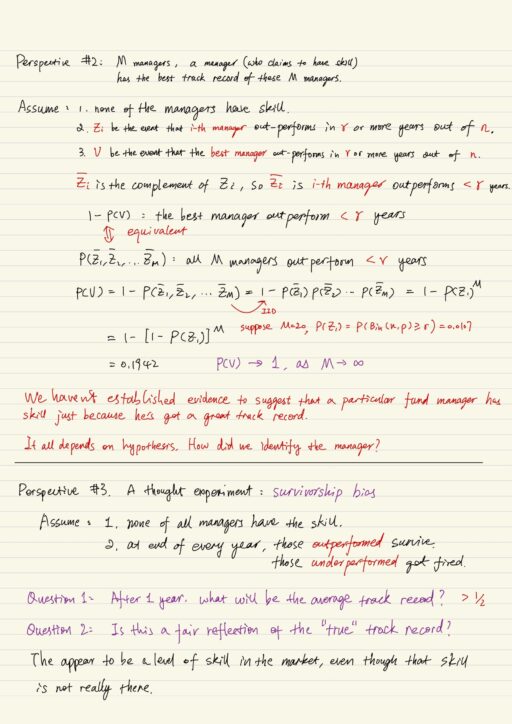 Perspective #2: M managers, a manager (who claims to have skill)
has the best track record of those M managers.
Assume: 1. none of the managers have skill.
2. Zi be the event that i-th manager out-performs in r or more years out of n.
3. V be the event that the best manager out-performs in r or more years out of n.
Z̅i is the complement of Zi, so Z̅i is i-th manager outperforms < r years.
1 - P(V) : the best manager outperform < r years
⇕ equivalent
P(Z̅1, Z̅2, ... Z̅M) : all M managers outperform < r years
P(V) = 1 - P(Z̅1, Z̅2, ... Z̅M) = 1 - P(Z̅1) P(Z̅2) ... P(Z̅M) = 1 - P(Z̅1)^M
IID
= 1 - [1 - P(Z1)]^M suppose M=20, P(Z1) = P(Bin(n,p) ≥ r) = 0.0107
= 0.1942 P(V) → 1, as M → ∞
We haven't established evidence to suggest that a particular fund manager has
skill just because he's got a great track record.
It all depends on hypothesis. How did we identify the manager?
Perspective #3. A thought experiment: survivorship bias
Assume: 1. none of all managers have the skill.
2. at end of every year, those outperformed survive.
those underperformed got fired.
Question 1: After 1 year. what will be the average track record? > 1/2
Question 2: Is this a fair reflection of the "true" track record?
The appear to be a level of skill in the market, even though that skill
is not really there.